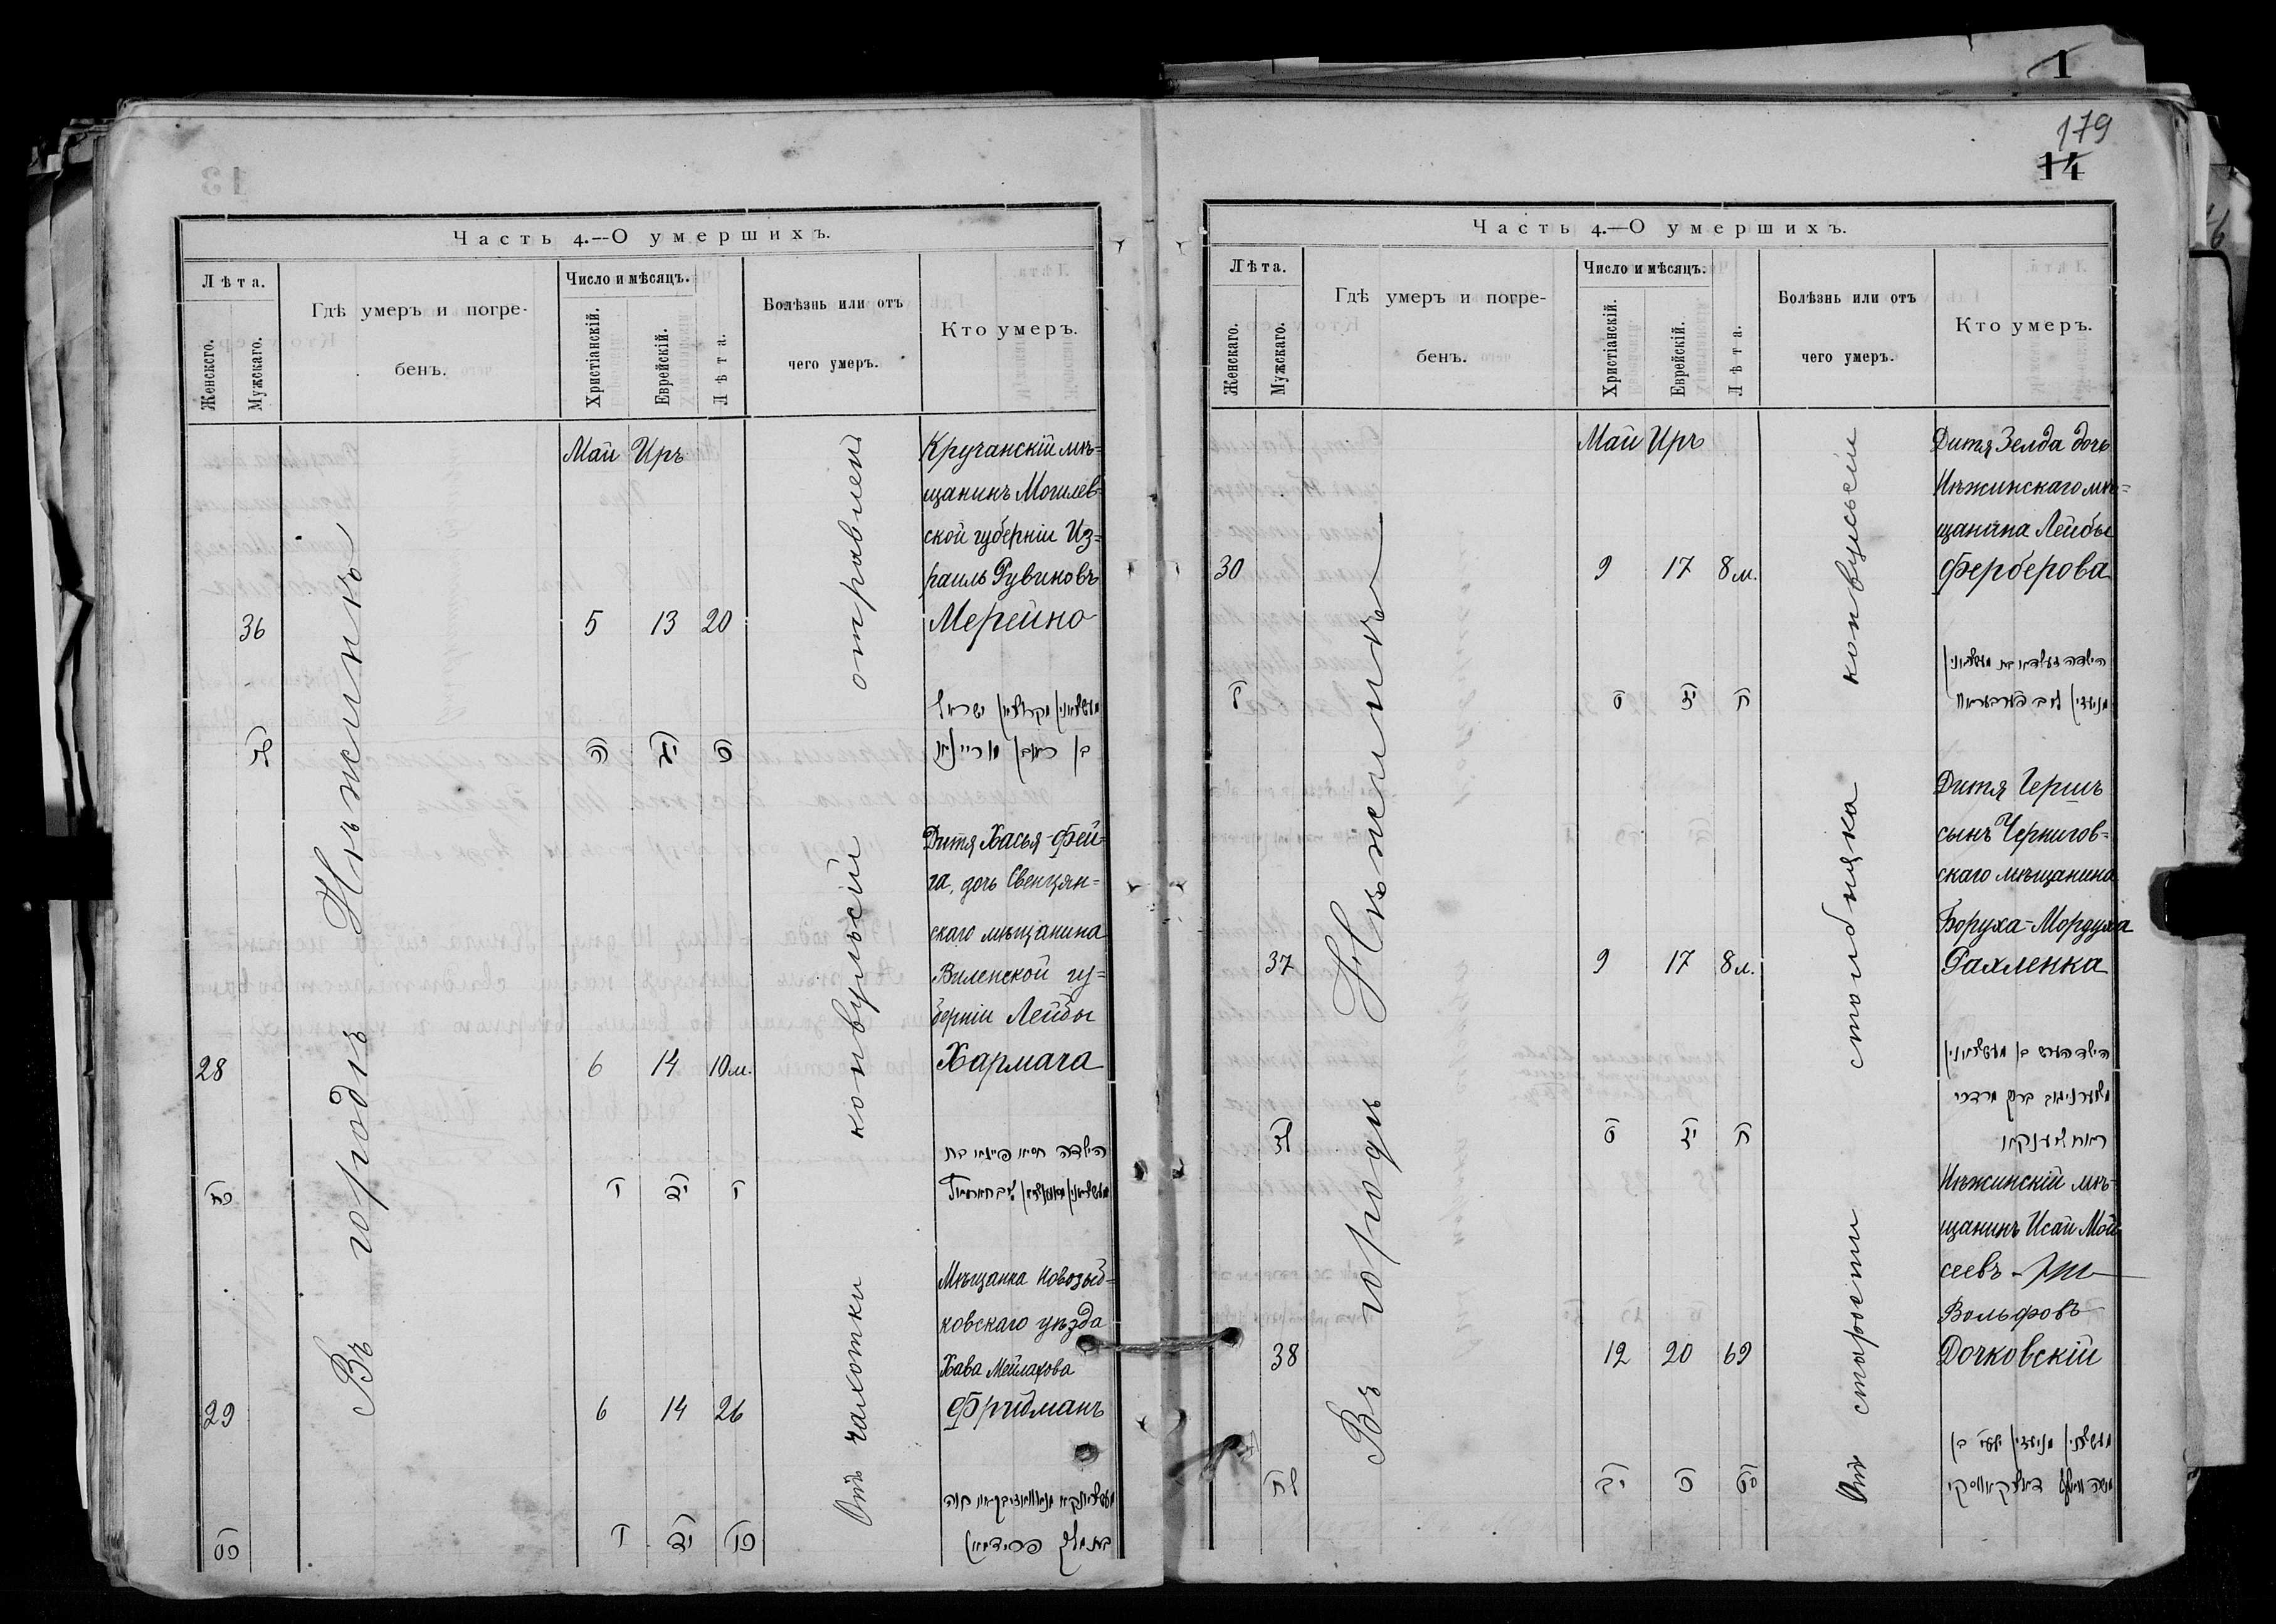 1
179
14
Часть 4.—О умершихъ.
Лѣта.
Женскаго.
Мужскаго.
Гдѣ умеръ и погре-
бенъ.
Число и мѣсяцъ.
Христіанскій.
Еврейскій.
Лѣта.
Болѣзнь или отъ
чего умеръ.
Кто умеръ.
Въ городѣ Нѣжинкѣ
Май Иръ
36
5 13 20
отравлен
Кручанскій мѣ-
щанинъ Могилев-
ской губерніи Из-
раиль Рувиновъ
Мерейно
לו
ה יג כ
בן ראובן מריינא
28
6 14 10 м.
конвульсій
Дитя Хасья-Фей-
га, дочь Свенцян-
скаго мѣщанина
Виленской гу-
берніи Лейбы
Хармача
הילדה חסיא פייגא בת
כח
ו יד י
29
6 14 26
Отъ чахотки
Мѣщанка Новозыб-
ковскаго уѣзда
Хава Мейлахова
Фридманъ
כט
ו יד כו
פרידמאן
Часть 4.—О умершихъ.
Лѣта.
Женскаго.
Мужскаго.
Гдѣ умеръ и погре-
бенъ.
Число и мѣсяцъ.
Христіанскій.
Еврейскій.
Лѣта.
Болѣзнь или отъ
чего умеръ.
Кто умеръ.
Въ городѣ Нѣжинѣ
Май Иръ
30
9 17 8 м.
конвульсій
Дитя Зелда дочь
Нѣжинскаго мѣ-
щанина Лейбы
Ферберова
ל
ט יז ח
37
9 17 8 м.
столбняка
Дитя Гершъ
сынъ Чернигов-
скаго мѣщанина
Боруха-Мордуха
Рахленка
לז
ט יז ח
38
12 20 69
Отъ старости
Нѣжинскій мѣ-
щанинъ Исай Мой-
сеевъ
Вольфовъ
Дочковскій
לח
יב כ סט